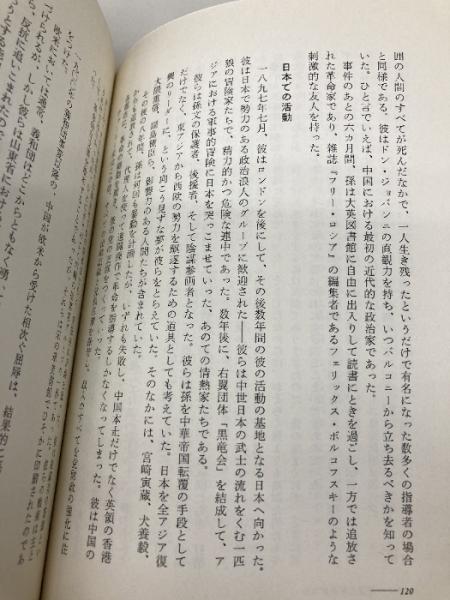 囲の人間のすべてが死んだなかで、一人生き残ったというだけで有名になった数多くの指導者の場合
と同様である。彼はドン・ジョバンニの直観力を持ち、いつバルコニーから立ち去るべきかを知って
いた。ひと言でいえば、中国における最初の近代的な政治家であった。
事件のあとの六カ月間、孫は大英図書館に自由に出入りして読書にときを過ごし、一方では追放さ
れた革命家であり、雑誌『フリー・ロシア』の編集者であるフェリックス・ボルコフスキーのような
刺激的な友人を持った。
日本での活動
一八九七年七月、彼はロンドンを後にして、その後数年間の彼の活動の基地となる日本へ向かった。
彼は日本で勢力のある政治浪人のグループに歓迎された――彼らは中世日本の武士の流れをくむ一匹
狼の冒険家たちで、精力的かつ危険な連中であった。数年後に、右翼団体「黒竜会」を結成して、ア
ジアにおける軍事的冒険に日本を突っこませていった、あのての情熱家たちである。
彼らは孫文の保護者、後援者、そして陰謀参画者となった。彼らは孫を中華帝国転覆の手段として
だけでなく、東アジアから西欧の勢力を駆逐するための道具としても考えていた。日本を全アジア復
興のリーダーに、という向こう見ずな夢が彼らをとらえていた。そのなかには、宮崎寅蔵、犬養毅、
大隈重信、副島種臣ら、影響力のある人間たちが含まれていた。
その後の八年間、孫は何回も蜂起を計画したが、いずれも失敗し、中国本土だけでなく英領の香港
からも追放された
て遠隔操作で革命を指導するしかなくなってしまった。彼は中国の
つけられるが、しかし彼らは山東省における
ら、反抗に追いこまれたのである。
120